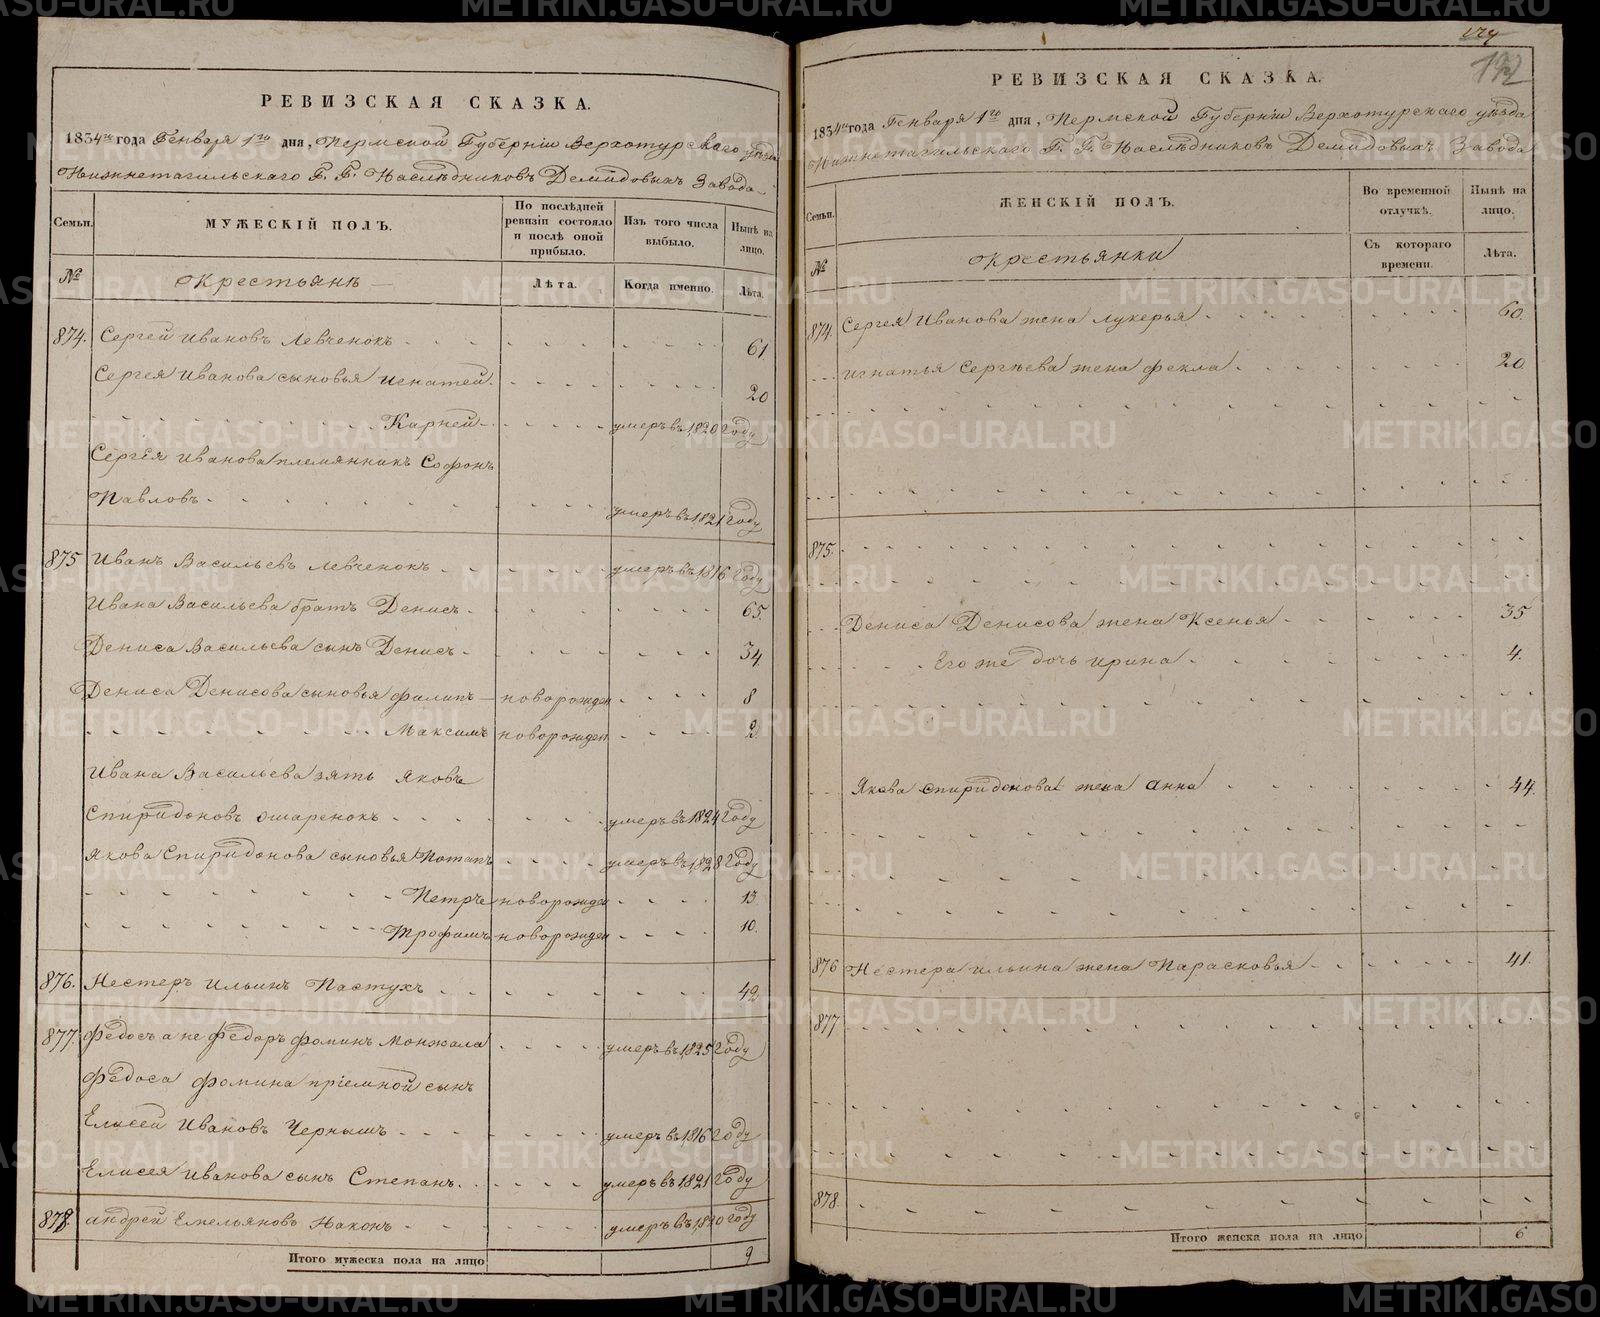 РЕВИЗСКАЯ СКАЗКА.
1834го года Генваря 1го дня, Пермской Губерніи Верхотурскаго уѣзда
Нижнетагильскаго Г. Г. Наслѣдниковъ Демидовыхъ Завода
Семьи.
МУЖЕСКІЙ ПОЛЪ.
По послѣдней ревизіи состояло и послѣ оной прибыло.
Изъ того числа выбыло.
Нынѣ на лицо.
№
Крестьянъ
Лѣта.
Когда именно.
Лѣта.
874. Сергей Ивановъ Левченокъ 61
Сергея Иванова сыновья Игнатей 20
Карпей умеръ въ 1820 Году
Сергея Иванова племянникъ Софонъ
Павловъ умеръ въ 1821 Году
875 Иванъ Васильевъ Левченокъ умеръ въ 1816 Году
Ивана Васильева братъ Денисъ 65.
Дениса Васильева сынъ Денисъ 34.
Дениса Денисова сыновья Филипъ новорожден 8
Максимъ новорожден 2
Ивана Васильева зять Яковъ
Спиридоновъ Ошаренокъ умеръ въ 1824 Году
Якова Спиридонова сыновья Потапъ умеръ въ 1828 Году
Петръ новорожден 13.
Трофимъ новорожден 10.
876. Нестеръ Ильинъ Пастухъ 42
877. Федосъ а не Федоръ Фоминъ Монжала умеръ въ 1825 Году
Федоса Фомина пріемной сынъ
Елисей Ивановъ Чернышъ умеръ въ 1816 Году
Елисея Иванова сынъ Степанъ умеръ въ 1821 Году
878. Андрей Емельяновъ Наконъ умеръ въ 1820 году
Итого мужеска пола на лицо 9
РЕВИЗСКАЯ СКАЗКА.
1834го года Генваря 1го дня, Пермской Губерніи Верхотурскаго уѣзда
Нижнетагильскаго Г. Г. Наслѣдниковъ Демидовыхъ Завода
Семьи.
ЖЕНСКІЙ ПОЛЪ.
Во временной отлучкѣ.
Нынѣ на лицо.
№
Крестьянки
Съ котораго времени.
Лѣта.
874. Сергея Иванова жена Лукерья 60.
Игнатья Сергѣева жена Фекла 20
875.
Дениса Денисова жена Ксенья 35
Его же дочь Ирина 4.
Якова Спиридонова жена Анна 44.
876 Нестера Ильина жена Парасковья 41.
877
878.
Итого женска пола на лицо 6
METRIKI.GASO-URAL.RU